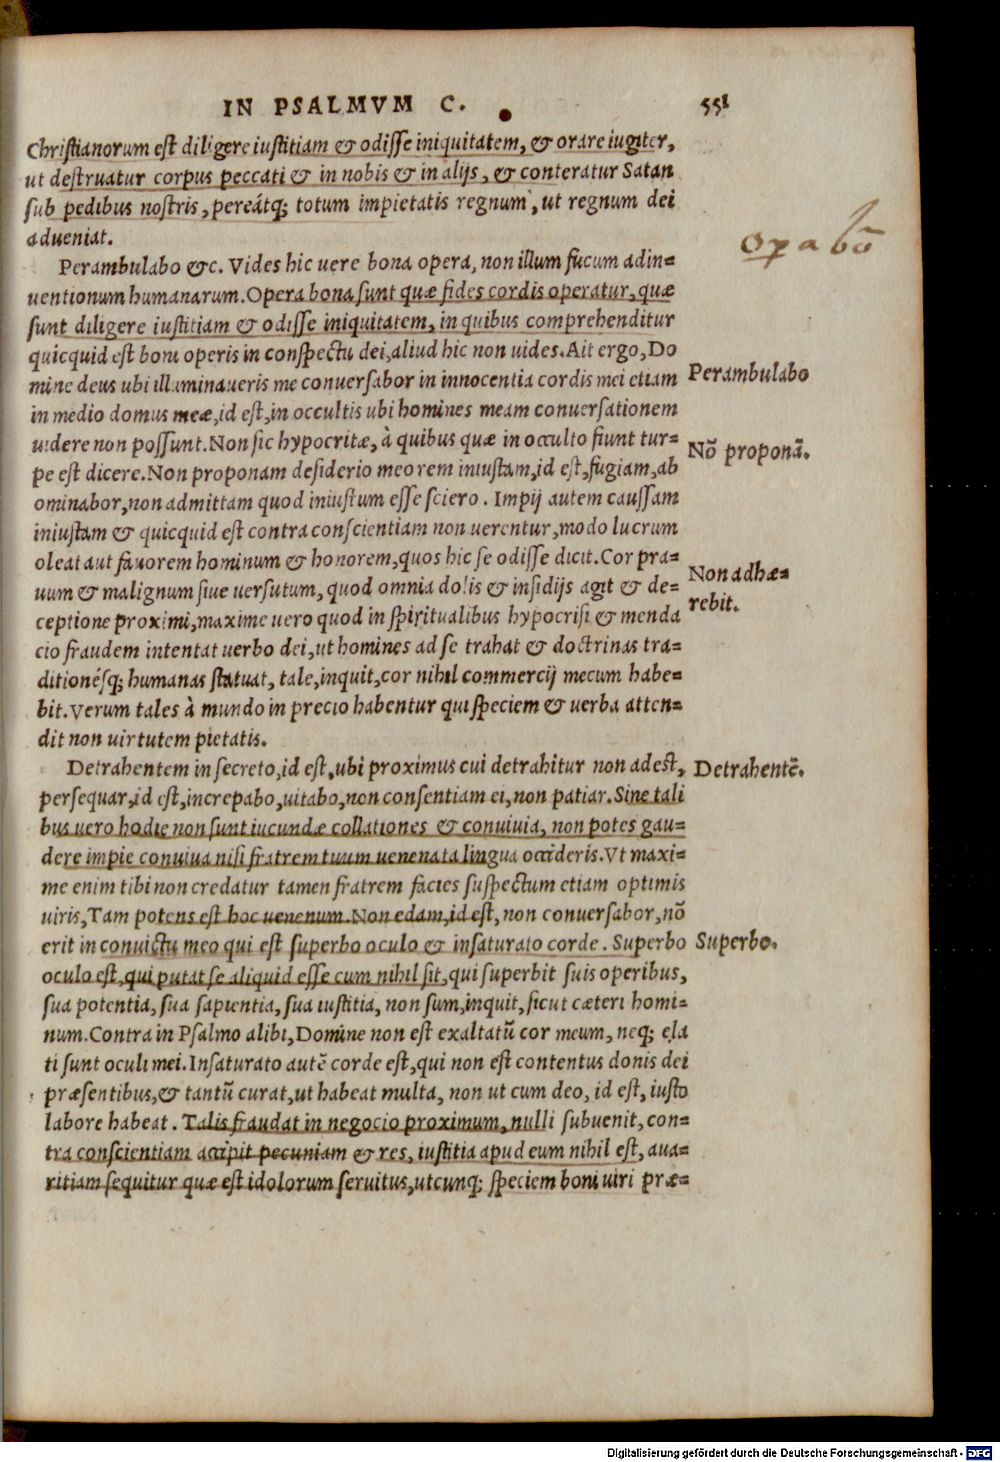 IN PSALMVM C. 551
Christianorum est diligere iustitiam & odisse iniquitatem, & orare iugiter,
ut destruatur corpus peccati & in nobis & in alijs, & conteratur Satan
sub pedibus nostris, pereátq; totum impietatis regnum, ut regnum dei
adueniat.
Opa bō
Perambulabo &c. Vides hic uere bona opera, non illum fucum adin=
uentionum humanarum. Opera bona sunt quæ fides cordis operatur, quæ
sunt diligere iustitiam & odisse iniquitatem, in quibus comprehenditur
quicquid est boni operis in conspectu dei, aliud hic non uides. Ait ergo, Do
mine deus ubi illuminaueris me conuersabor in innocentia cordis mei etiam
Perambulabo
in medio domus meæ, id est, in occultis ubi homines meam conuersationem
uidere non possunt. Non sic hypocritæ, à quibus quæ in occulto fiunt tur=
Nō proponā.
pe est dicere. Non proponam desiderio meo rem iniustam, id est, fugiam, ab
ominabor, non admittam quod iniustum esse sciero. Impij autem caussam
iniustam & quicquid est contra conscientiam non uerentur, modo lucrum
oleat aut fauorem hominum & honorem, quos hic se odisse dicit. Cor pra=
uum & malignum siue uersutum, quod omnia dolis & insidijs agit & de=
Non adhæ=
rebit.
ceptione proximi, maxime uero quod in spiritualibus hypocrisi & menda
cio fraudem intentat uerbo dei, ut homines ad se trahat & doctrinas tra=
ditionésq; humanas statuat, tale, inquit, cor nihil commercij mecum habe=
bit. Verum tales à mundo in precio habentur qui speciem & uerba atten=
dit non uirtutem pietatis.
Detrahentem in secreto, id est, ubi proximus cui detrahitur non adest,
Detrahentē.
persequar, id est, increpabo, uitabo, non consentiam ei, non patiar. Sine tali
bus uero hodie non sunt iucundæ collationes & conuiuia, non potes gau=
dere impie conuiua nisi fratrem tuum uenenata lingua occideris. Vt maxi=
me enim tibi non credatur tamen fratrem facies suspectum etiam optimis
uiris, Tam potens est hoc uenenum. Non edam, id est, non conuersabor, nō
erit in conuictu meo qui est superbo oculo & insaturato corde. Superbo
Superbo.
oculo est, qui putat se aliquid esse cum nihil sit, qui superbit suis operibus,
sua potentia, sua sapientia, sua iustitia, non sum, inquit, sicut cæteri homi=
num. Contra in Psalmo alibi, Domine non est exaltatū cor meum, neq; ela
ti sunt oculi mei. Insaturato autē corde est, qui non est contentus donis dei
præsentibus, & tantū curat, ut habeat multa, non ut cum deo, id est, iusto
labore habeat. Talis fraudat in negocio proximum, nulli subuenit, con=
tra conscientiam accipit pecuniam & res, iustitia apud eum nihil est, aua=
ritiam sequitur quæ est idolorum seruitus, utcunq; speciem boni uiri præ=
Digitalisierung gefördert durch die Deutsche Forschungsgemeinschaft - DFG